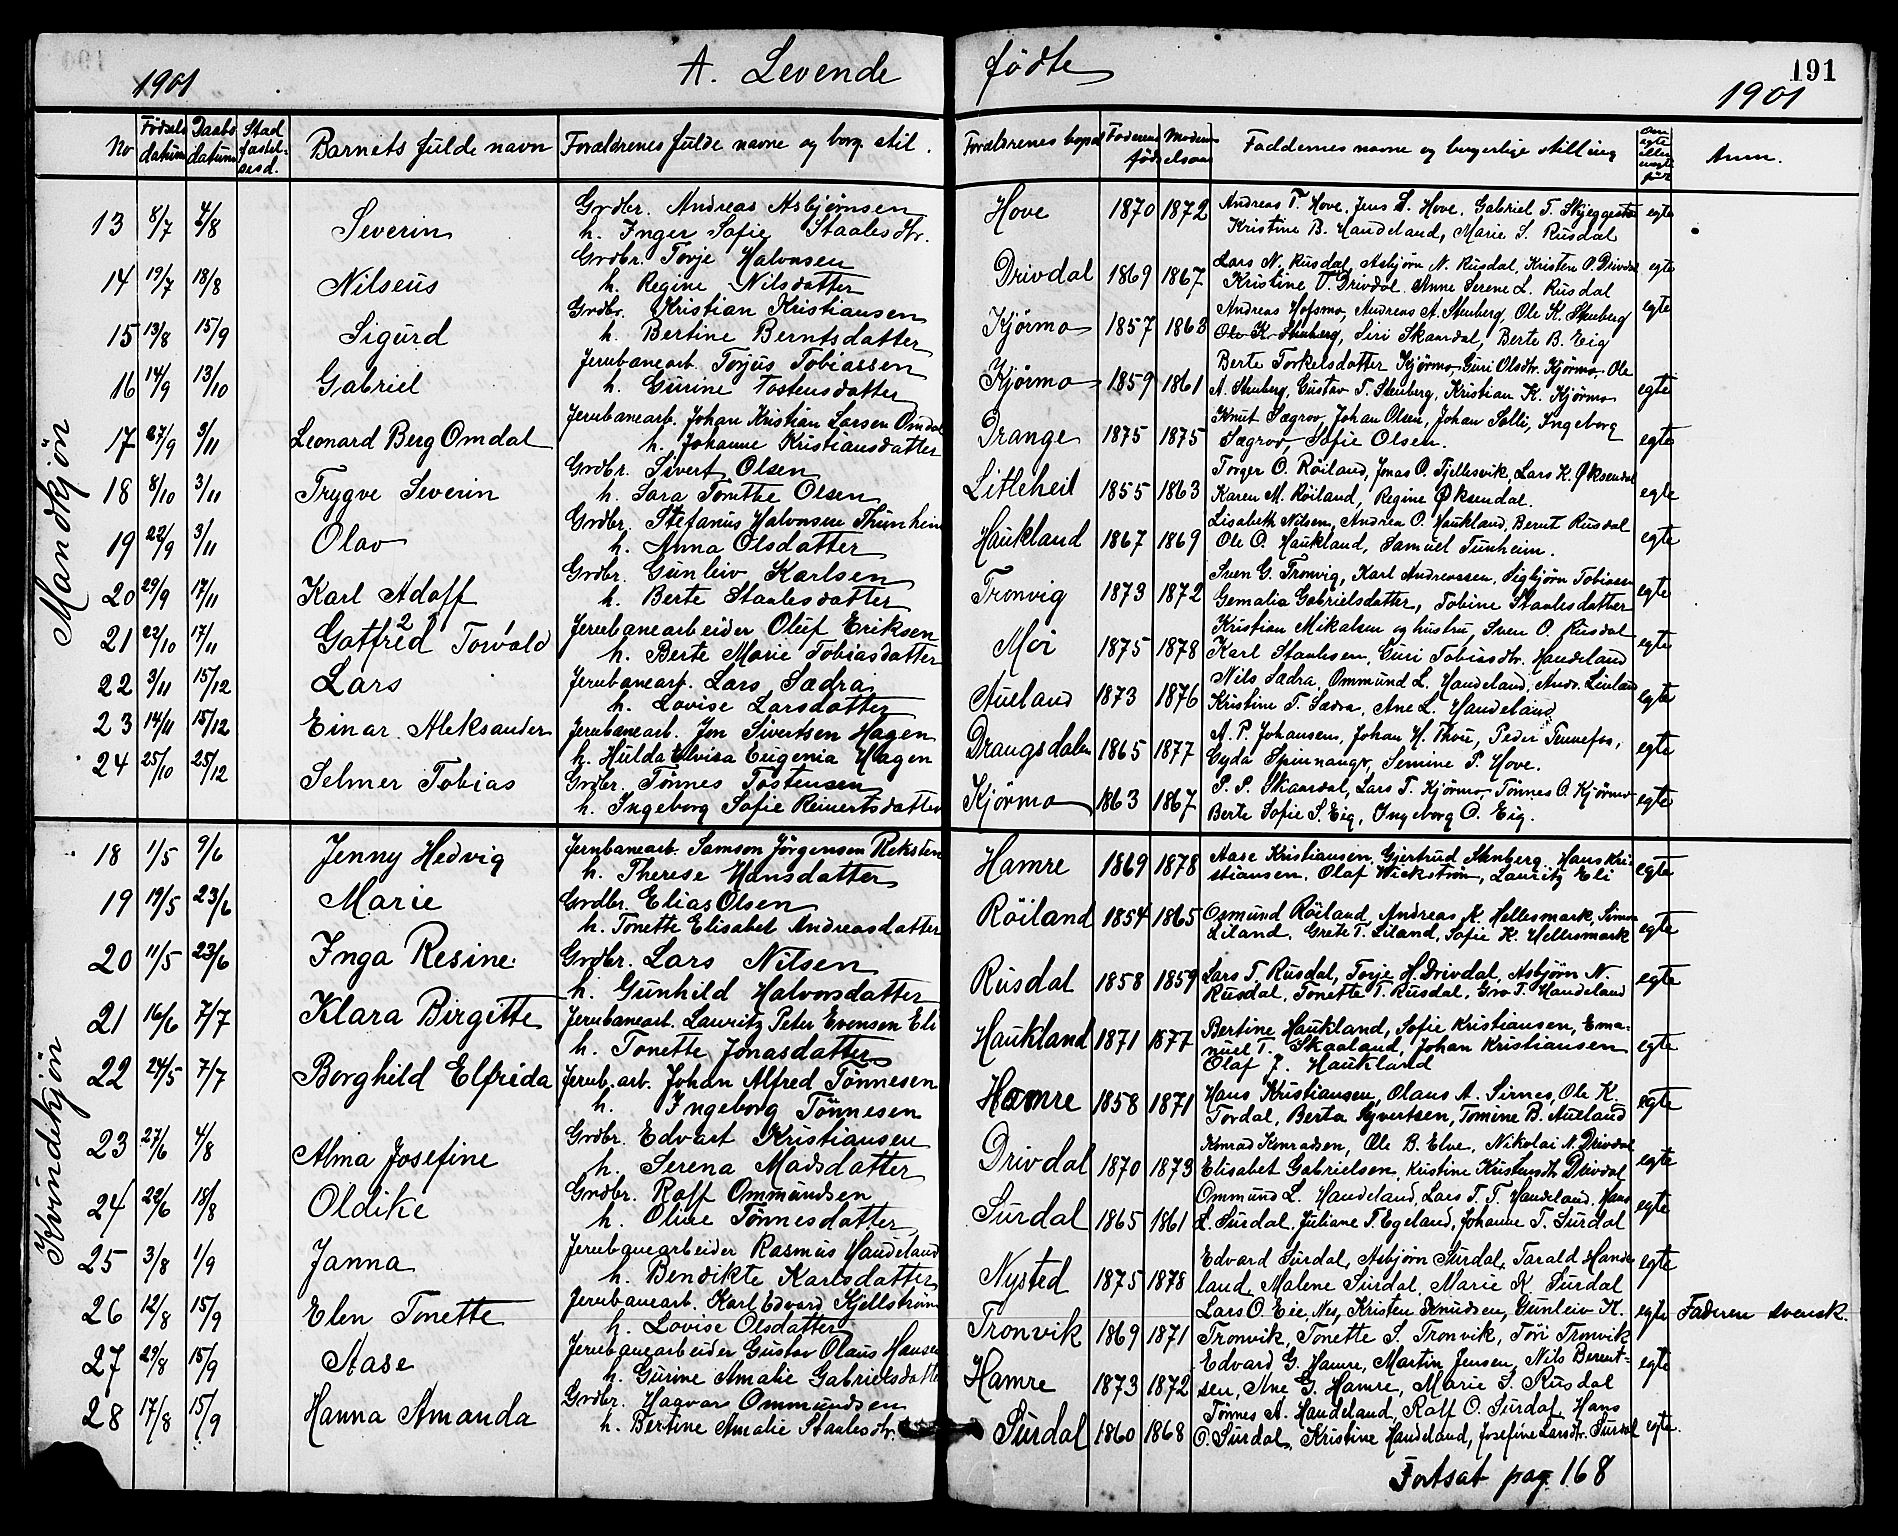 1901 A. Levende fødte 191
1901
No Fødsels datum Daabs datum Stad fæstel- sesd. Barnets fulde navn Forældrenes fulde navne og borg. stil. Forældrenes bopæl Faderens Moderens fødselsaar Faddernes navne og borgerlige stilling Om egte eller uegte født Anm.
Mandkjøn
13 8/7 4/8 Severin Grdbr. Andreas Asbjørnsen Hove 1870 1872 Andreas T. Hove, Jens S. Hove, Gabriel T. Skjeggestad egte
h. Inger Sofie Staalesdtr. Kristine B. Handeland, Marie S. Rusdal
14 19/7 18/8 Nilseus Grdbr. Torje Halvorsen Drivdal 1869 1867 Lars N. Rusdal, Asbjørn N. Rusdal, Kristen O. Drivdal egte
h. Regine Nilsdatter Kristine T. Drivdal, Anne Serene L. Rusdal
15 13/8 15/9 Sigurd Grdbr. Kristian Kristiansen Kjørmo 1857 1863 Andreas Hofsmo, Andreas A. Stenberg, Ole K. Stenberg egte
h. Bertine Berntsdatter Ole K. Stenberg, Siri Skaardal, Berte B. Eig
16 14/9 13/10 Gabriel Jernbanearb. Torjus Tobiassen Kjørmo 1859 1861 Berte Torkelsdatter Kjørmo, Guri Olsdtr. Kjørmo, Ole egte
h. Gurine Tostensdatter A. Stenberg, Gustav T. Stenberg, Kristian K. Kjørmo
17 27/9 3/11 Leonard Berg Omdal Jernbanearb. Johan Kristian Larsen Omdal Drange 1875 1875 Knut Sægrov, Johan Olsen, Johan Solli, Ingeborg egte
h. Johanne Kristiansdatter Sægrov, Sofie Olsen.
18 8/10 3/11 Trygve Severin Grdbr. Sivert Olsen Litleheil 1855 1863 Torger O. Røiland, Jonas O. Tjellesvik, Lars K. Øksendal egte
h. Sara Tomthe Olsen Karen M. Røiland, Regine Øksendal.
19 22/9 3/11 Olav Grdbr. Stefanus Halvorsen Thunheim Haukland 1867 1869 Lisabeth Nilsen, Andrea O. Haukland, Bernt Rusdal egte
h. Anna Olsdatter Ole O. Haukland, Samuel Tunheim.
20 29/9 17/11 Karl Adolf Grdbr. Gunleiv Karlsen Tronvig 1873 1872 Sven G. Tronvig, Karl Andreassen, Sigbjørn Tobiassen egte
h. Berte Staalesdatter Gemalia Gabrielsdatter, Tobine Staalesdatter
21 22/10 17/11 Gotfred Torvald Jernbanearbeider Oluf Eriksen Moi 1875 1878 Kristian Mikalsen og hustru, Sven O. Rusdal egte
h. Berte Marie Tobiasdatter Karl Staalesen, Guri Tobiasdtr. Handeland
22 3/11 15/12 Lars Jernbanearb. Lars Sædra Aueland 1873 1876 Nils Sædra, Ommund L. Handeland, Andr. Linland egte
h. Lovise Larsdatter Kristine T. Sædra, Ane L. Handeland
23 14/11 15/12 Einar Aleksander Jernbanearb. Jon Sivertsen Hagen Drangsdalen 1865 1877 A. P. Johansen, Johan H. Thou, Peder Tennefos, egte
h. Hulda Elvisa Eugenia Hagen Gyda Spinnangr, Semine P. Hove.
24 25/10 25/12 Selmer Tobias Grdbr. Tønnes Tostensen Kjørmo 1863 1867 P. P. Skaardal, Lars T. Kjørmo, Tønnes O. Kjørmo egte
h. Ingeborg Sofie Reinertsdatter Berte Sofie S. Eig, Ingeborg O. Eig.
Kvindekjøn
18 1/5 9/6 Jenny Hedvig Jernbanearb. Samson Jørgensen Reksten Hamre 1869 1878 Aase Kristiansen, Gjertrud Stenberg, Hans Kri- egte
h. Therese Hansdatter stiansen, Olaf Wickstrøm, Lauritz Eli
19 19/5 23/6 Marie Grdbr. Elias Olsen Røiland 1854 1865 Osmund Røiland, Andreas K. Hellesmark, Simon egte
h. Tonette Elisabet Andreasdatter Liland, Grete T. Liland, Sofie K. Hellesmark
20 11/5 23/6 Inga Resine Grdbr. Lars Nilsen Rusdal 1858 1859 Lars T. Rusdal, Torje H. Drivdal, Asbjørn N. egte
h. Gunhild Halvorsdatter Rusdal, Tonette T. Rusdal, Gro T. Handeland
21 16/6 7/7 Klara Birgitte Jernbanearb. Lauritz Peter Evensen Eli Haukland 1871 1877 Bertine Haukland, Sofie Kristiansen, Ema- egte
h. Tonette Jonasdatter nuel T. Skaaland, Johan Kristiansen
Olaf J. Haukland
22 24/5 7/7 Borghild Elfrida Jernb. arb. Johan Alfred Tønnesen Hamre 1858 1871 Hans Kristiansen, Olaus A. Sirnes, Ole K. egte
h. Ingeborg Tønnesen Tordal, Berta Syvertsen, Tomine B. Aueland
23 27/6 4/8 Alma Josefine Grdbr. Edvart Kristiansen Drivdal 1870 1873 Konrad Konradsen, Ole B. Elve, Nikolai N. Drivdal egte
h. Serena Madsdatter Elisabet Gabrielsen, Kristine Kristensdtr. Drivdal
24 22/6 18/8 Oldike Grdbr. Rolf Ommundsen Surdal 1865 1861 Ommund L. Handeland, Lars T. T. Handeland, Hans egte
h. Oline Tønnesdatter L. Surdal, Juliane T. Egeland, Johanne T. Surdal
25 3/8 1/9 Janna Jernbanearbeider Rasmus Handeland Nysted 1875 1878 Edvard Surdal, Asbjørn Surdal, Tarald Hande- egte
h. Bendikte Karlsdatter land, Malene Surdal, Marie K. Surdal
26 12/8 15/9 Elen Tonette Jernbanearb. Karl Edvard Kjellstrøm Tronvik 1869 1871 Lars O. Eie, Nes, Kristen Knudsen, Gunleiv K. egte Faderen svensk.
h. Lovise Olsdatter Tronvik, Tonette S. Tronvik, Tori Tronvik
27 29/8 15/9 Aase Jernbanearbeider Gustav Olaus Hansen Hamre 1873 1872 Edvard G. Hamre, Martin Jensen, Nils Berent- egte
h. Gurine Amalie Gabrielsdatter sen, Ane G. Hamre, Marie S. Rusdal
28 17/8 15/9 Hanna Amanda Grdbr. Haavar Ommundsen Surdal 1860 1868 Tønnes A. Handeland, Rolf O. Surdal, Hans egte.
h. Bertine Amalie Staalesdtr. O. Surdal, Kristine Handeland, Josefine Larsdtr. Surdal
Fortsat pag. 168